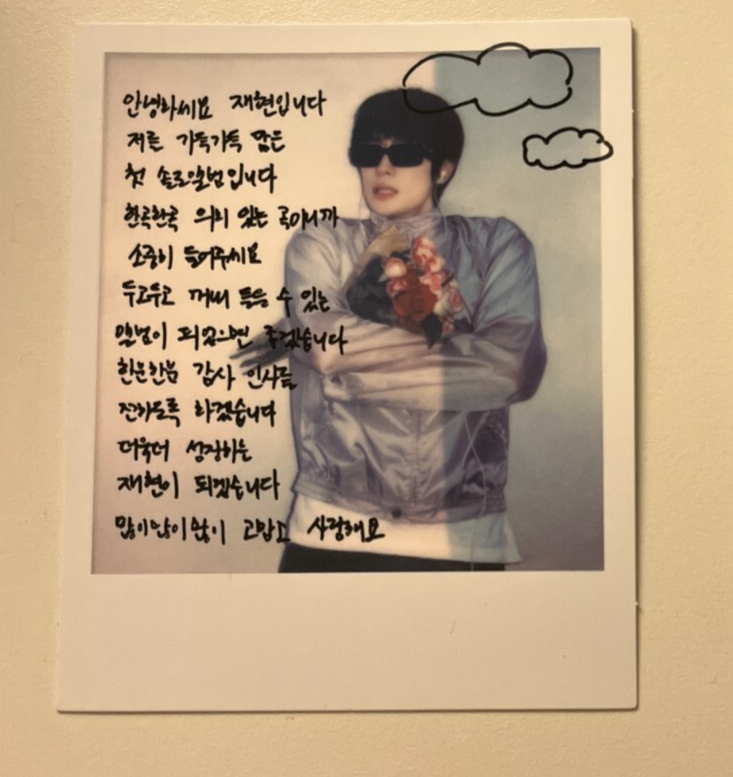 안녕하세요 재현입니다
저를 가득가득 담은
첫 솔로앨범입니다
한곡한곡 의미 있는 곡이니까
소중히 들어주세요
두고두고 꺼내 들을 수 있는
앨범이 되었으면 좋겠습니다
한분한분 감사 인사를
전하도록 하겠습니다
더욱더 성장하는
재현이 되겠습니다
많이많이많이 고맙고 사랑해요